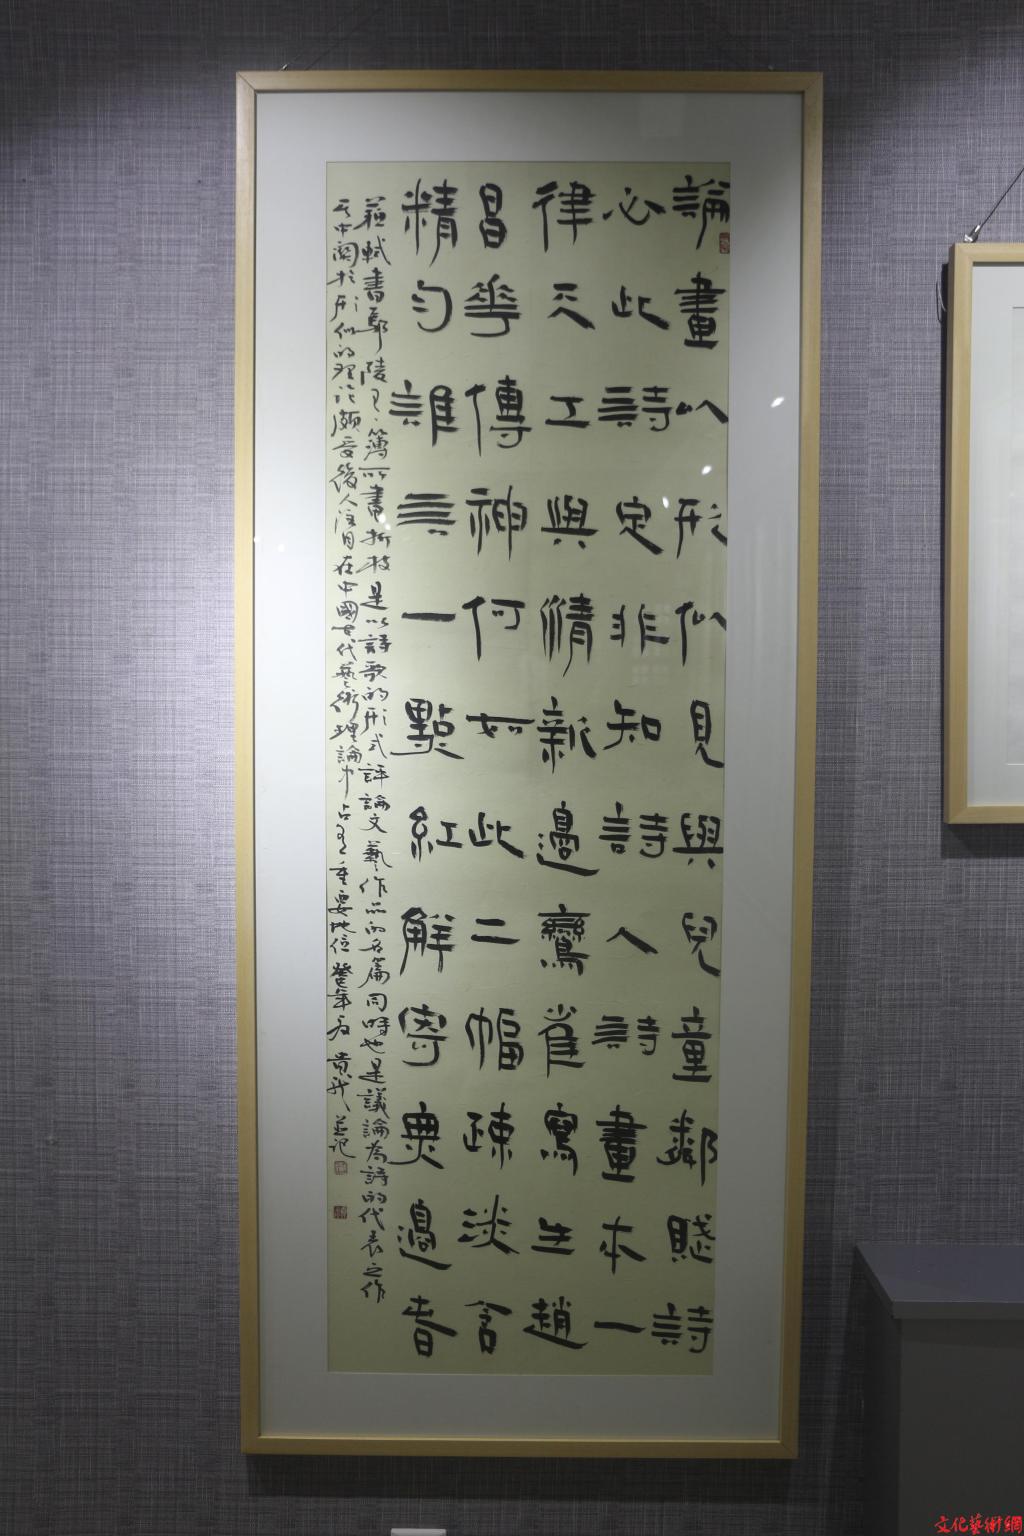 論畫以形似見與兒童鄰賦詩
必此詩定非知詩人詩畫本一
律天工與清新邊鸞雀寫生趙
昌華傳神何如此二幅疎淡含
精勻誰言一點紅解寄無邊春
蘇軾書鄢陵王主簿所畫折枝是以詩歌的形式評論文藝作品的名篇同時也是議論為詩的代表之作
其中關於形似的理論頗受後人注目在中國古代藝術理論中占有重要地位 並記
文化藝術網